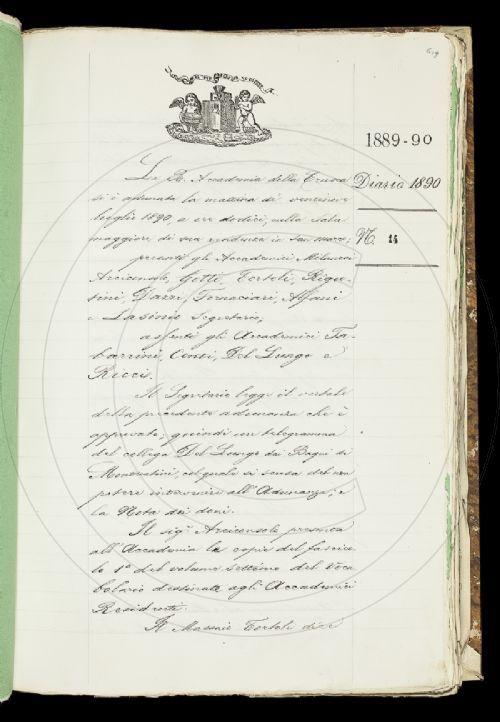 1889-90
Diario 1890
N. 14
La R. Accademia della Crusca
si è adunata la mattina di
luglio 1890, a ore dodici, nella sala
maggiore di sua residenza in San Marco;
presenti gli Accademici Milanesi
Arciconsolo, Gotti, Tortoli, Rigu-
tini, Dazzi, Fornaciari, Alfani
e Lasinio Segretario,
assenti gli Accademici Ta-
barrini, Conti, Del Lungo e
Ricci.
Il Segretario legge il verbale
della precedente adunanza che è
approvato; quindi un telegramma
del collega Del Lungo dai Bagni di
Montecatini, col quale si scusa del non
potere intervenire all'Adunanza; e
la Nota dei doni.
Il sig. Arciconsolo presenta
all'Accademia la copia del fascico-
lo 1° del volume settimo del Voca
bolario destinata agli Accademici
Residenti.
Il Massaio Tortoli